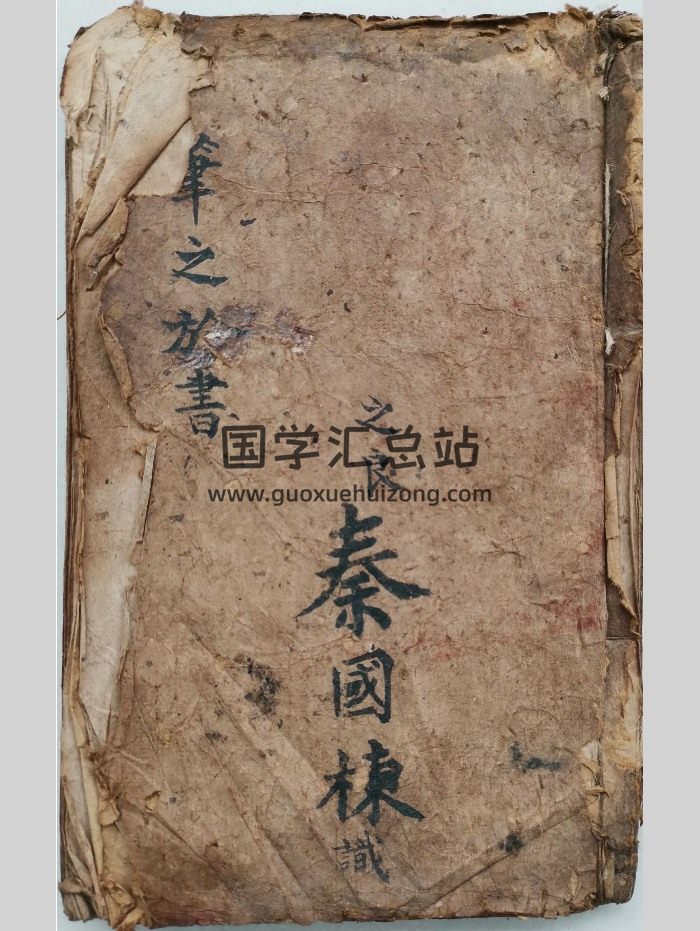 之良
秦國棟
識
筆之於書
国学汇总站
www.guoxuehuizong.com